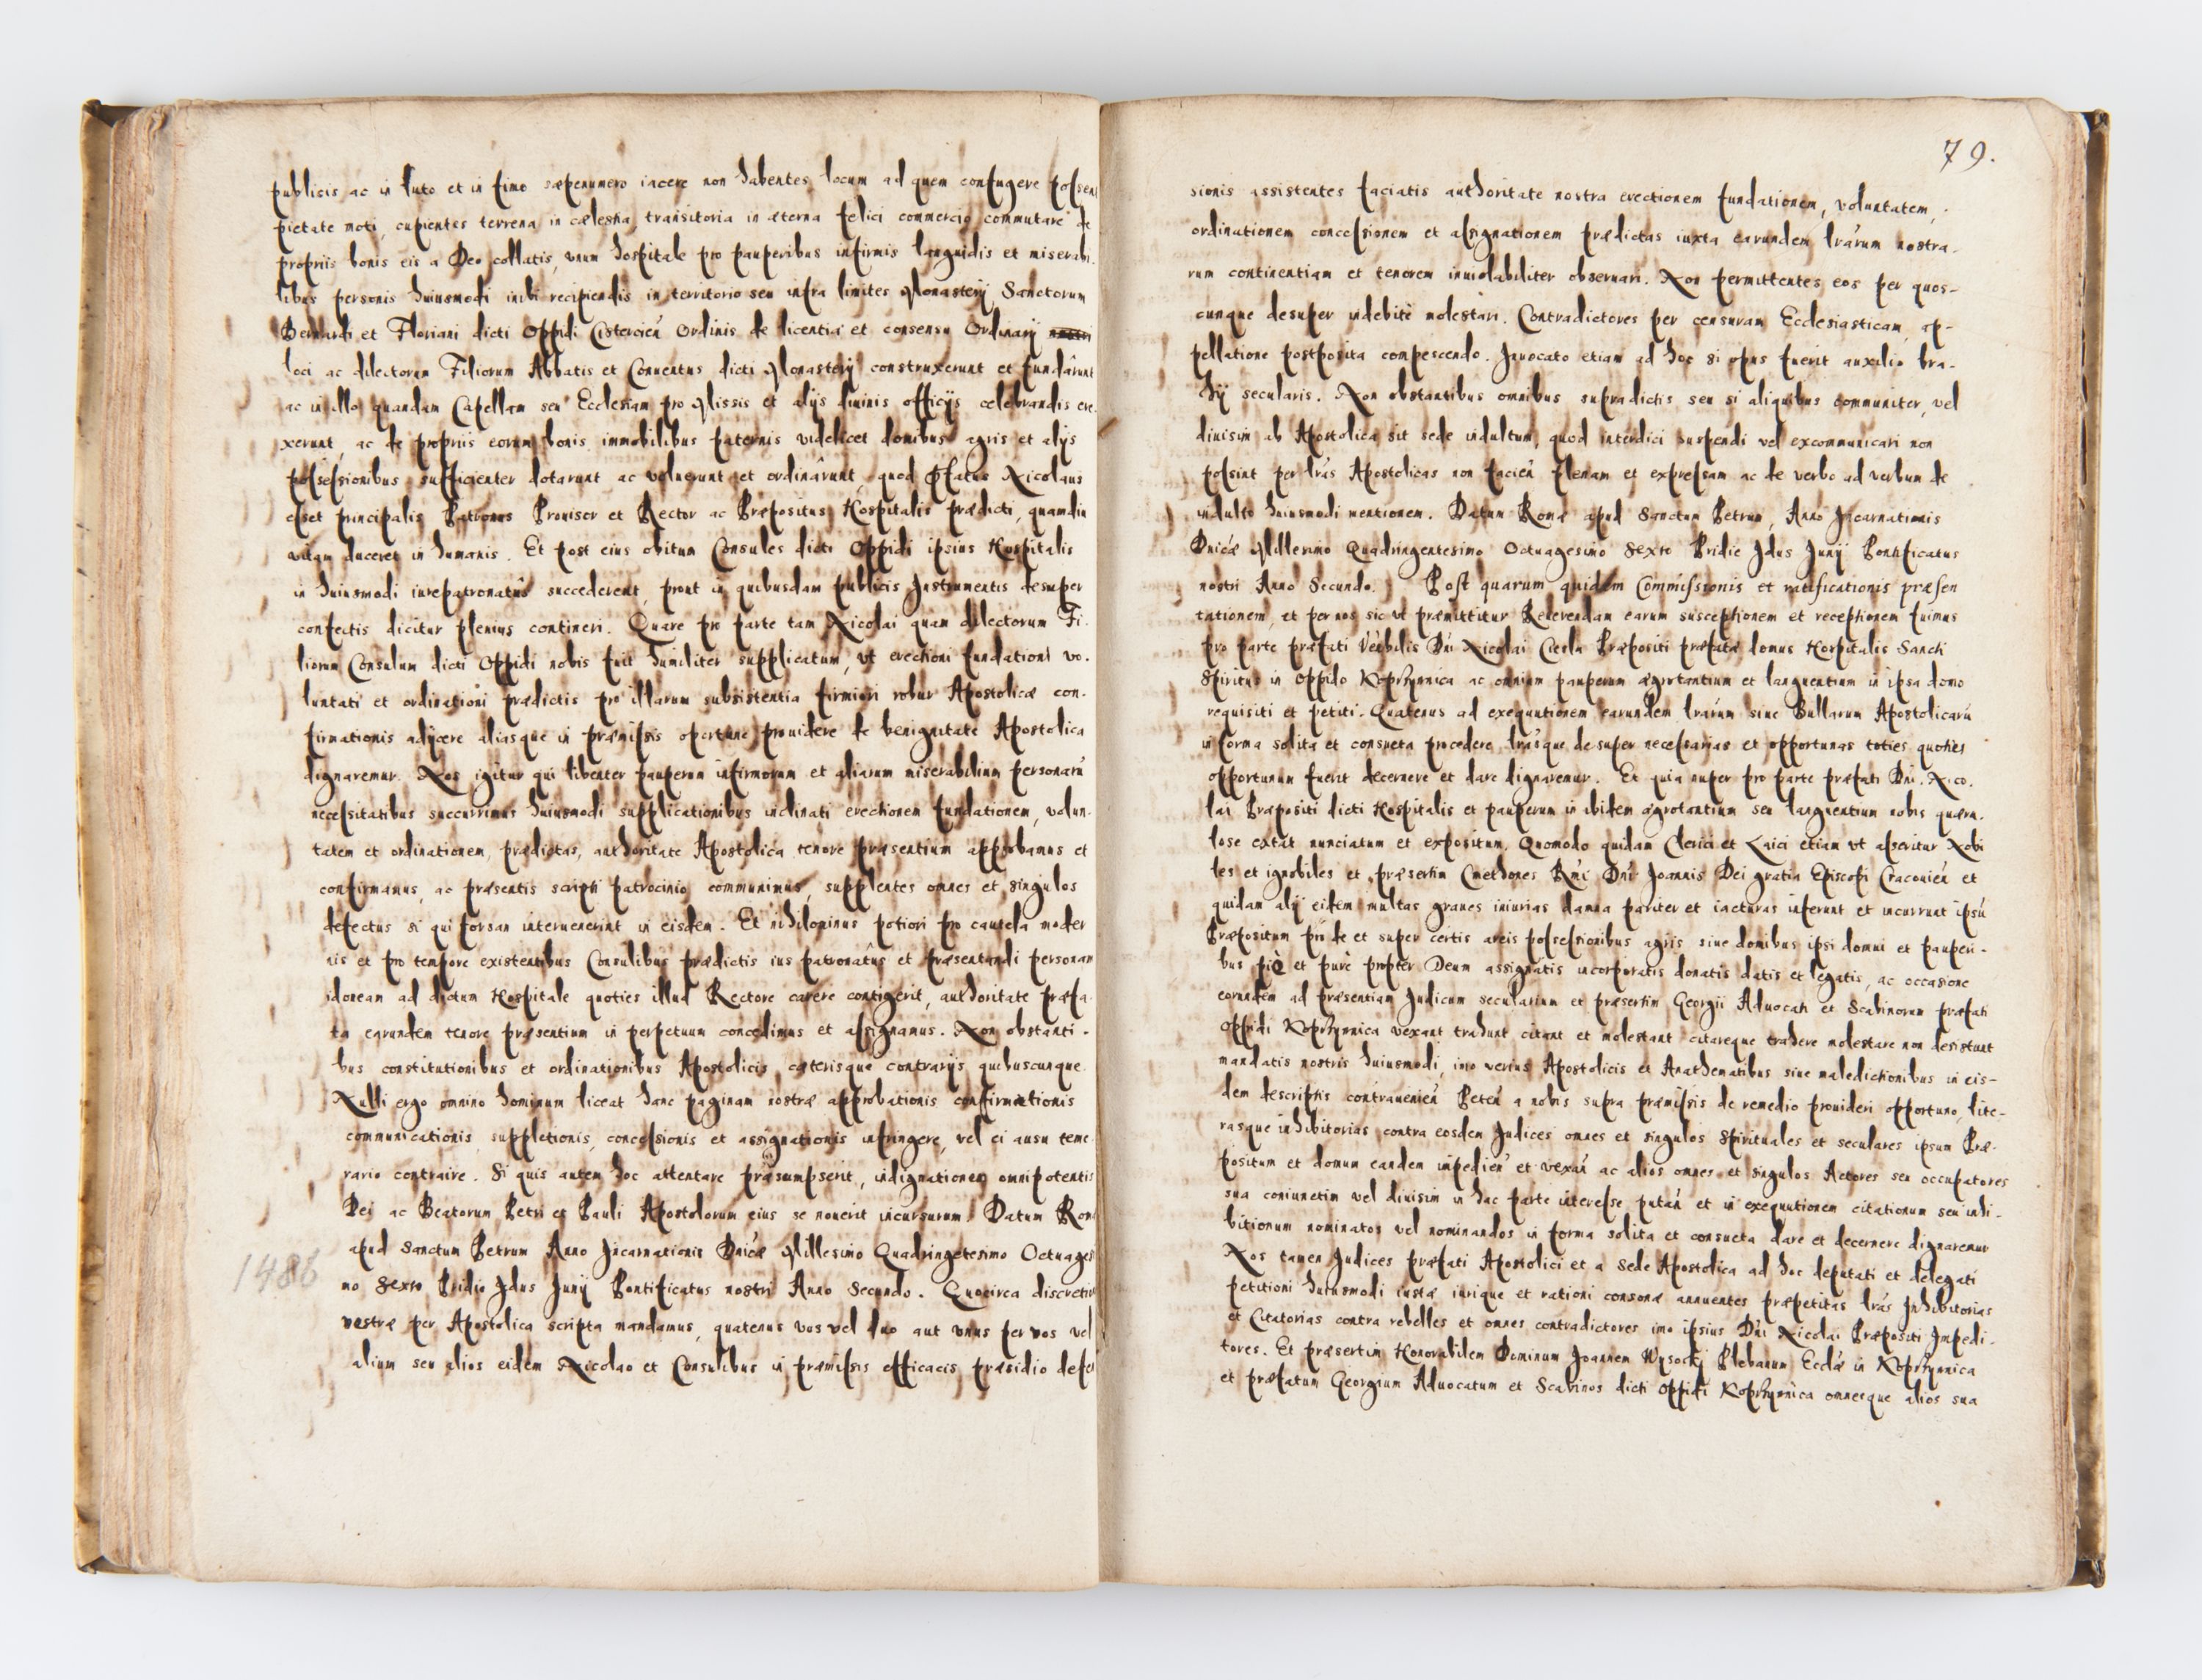 publicis, ac in luto et in fimo sæpenumero iacere non habentes locum ad quem confugere possen
pietate moti, cupientes terrena in cælestia, transitoria in æterna felici commercio commutare de
propriis bonis eis a Deo collatis, vnum hospitale pro pauperibus infirmis languidis et miserabi-
libus personis huiusmodi inibi recipiendis in territorio seu infra limites Monasterij Sanctorum
Bernardi et Floriani dicti Oppidi Cistercień Ordinis de licentia et consensu Ordinarij
loci ac dilectorum Filiorum Abbatis et Conuentus dicti Monasterij construxerunt et fundârunt
ac in illo quandam Capellam seu Ecclesiam pro Missis et alijs diuinis officijs celebrandis ere-
xerunt, ac de propriis eorum bonis immobilibus paternis videlicet domibus agris et alijs
possessionibus sufficienter dotarunt ac voluerunt et ordinârunt, quod Pfatus Nicolaus
esset principalis Patronus Prouisor et Rector ac Præpositus Hospitalis prædicti, quamdiu
vitam duceret in humanis. Et post eius obitum Consules dicti Oppidi ipsius Hospitalis
in huiusmodi iurepatronatûs succederent, prout in quibusdam publicis Instrumentis desuper
confectis dicitur plenius contineri. Quare pro parte tam Nicolai quam dilectorum Fi-
liorum Consulum dicti Oppidi nobis fuit humiliter supplicatum, vt erectioni fundationi vo-
luntati et ordinationi prædictis pro illarum subsistentia firmiori robur Apostolicæ con-
firmationis adijcere aliasque in præmissis oportune prouidere de benignitate Apostolica
dignaremur. Nos igitur qui libenter pauperum infirmorum et aliarum miserabilium personarū
necessitatibus succurrimus huiusmodi supplicationibus inclinati erectionem fundationem, volun-
tatem et ordinationem, prædictas, authoritate Apostolica tenore præsentium approbamus et
confirmamus, ac præsentis scripti patrocinio communimus, supplentes omnes et singulos
defectus si qui forsan interuenerint in eisdem. Et nihilominus potiori pro cautela moder
nis et pro tempore existentibus Consulibus prædictis ius patronatûs et præsentandi personam
idoneam ad dictum Hospitale quoties illud Rectore carere contigerit, authoritate præfa-
ta earundem tenore præsentium in perpetuum concedimus et assignamus. Non obstanti-
bus constitutionibus et ordinationibus Apostolicis, cæterisque contrarijs quibuscunque.
Nulli ergo omnino hominum liceat hanc paginam nostræ approbationis confirmationis
communicationis, suppletionis, concessionis et assignationis infringere, vel ei ausu teme-
rario contraire. Si quis autem hoc attentare præsumpserit, indignationem omnipotentis
Dei ac Beatorum Petri et Pauli Apostolorum eius se nouerit incursurum. Datum Rom
apud Sanctum Petrum Anno Incarnationis Dnićæ Millesimo Quadringetesimo Octuages
1486
mo Sexto Pridie Idus Junij Pontificatus nostri Anno Secundo. Quocirca discretio
vestræ per Apostolica scripta mandamus, quatenus vos vel duo aut vnus per vos vel
alium seu alios eidem Nicolao et Consulibus in præmissis efficacis præsidio defe
79.
sionis assistentes faciatis authoritate nostra erectionem fundationem, voluntatem,
ordinationem concessionem et assignationem prædictas iuxta earundem lrárum nostra-
rum continentiam et tenorem inuiolabiliter obseruari. Non permittentes eos per quos-
cunque desuper indebitè molestari. Contradictores per censuram Ecclesiasticam, ap-
pellatione postposita compescendo. Inuocato etiam ad hoc si opus fuerit auxilio bra-
chij secularis. Non obstantibus omnibus supradictis seu si aliquibus communiter, vel
diuisim ab Apostolica sit sede indultum, quod interdici suspendi vel excommunicari non
possint per lrás Apostolicas non facień plenam et expressam ac de verbo ad verbum de
indulto huiusmodi mentionem. Datum Romæ apud Sanctum Petrum, Anno Incarnationis
Dnićæ Millesimo Quadringentesimo Octuagesimo Sexto Pridie Idus Junij Pontificatus
nostri Anno Secundo. Post quarum quidem Commissionis et ratificationis præsen
tationem, et per nos sic vt præmittitur Reuerendam earum susceptionem et receptionem fuimus
pro parte præfati Venblis Dni Nicolai Ciesla Præpositi præfatæ domus Hospitalis Sancti
Spiritus in Oppido Koprzywnica ac omnium pauperum ægrotantium et languentium in ipsa domo
requisiti et petiti. Quatenus ad exequutionem earundem lrarum siue Bullarum Apostolicarū
in forma solita et consueta procedere lrásque desuper necessarias et opportunas toties quoties
opportunum fuerit decernere et dare dignaremur. Et quia nuper pro parte præfati Dni. Nico-
lai Præpositi dicti Hospitalis et pauperum in ibidem ægrotantium seu languentium nobis quæru-
lose extat nunciatum et expositum. Quomodo quidam Clerici et Laici etiam vt asseritur Nobi
les et ignobiles et præsertim Cmethones Rmi Dni Joannis Dei gratia Episcopi Cracouień et
quidam alij eidem multas graues iniurias damna pariter et iacturas inferunt et incurrunt ipsū
Præpositum pro de et super certis areis possessionibus agris siue domibus ipsi domui et pauperi-
bus piè et purè propter Deum assignatis incorporatis donatis datis et legatis, ac occasione
eorundem ad præsentiam Judicum secularium et præsertim Georgii Aduocati et Scabinorum præfati
Oppidi Koprzywnica vexant trahunt citant et molestant citareque trahere molestare non desistunt
mandatis nostris huiusmodi, imo verius Apostolicis et Anathematibus siue maledictionibus in eis-
dem descriptis contrauenień Petéń a nobis supra præmissis de remedio prouideri opportuno, lite-
rasque inhibitorias contra eosdem Judices omnes et singulos Spirituales et seculares ipsum Præ-
positum et domum eandem impedień et vexań ac alios omnes et singulos Actores seu occupatores
sua coniunctim vel diuisim in hac parte interesse putań et in exequutionem citationum seu inhi-
bitionum nominatos vel nominandos in forma solita et consueta dare et decernere dignaremur
Nos tamen Judices præfati Apostolici et a Sede Apostolica ad hoc deputati et delegati
petitioni huiusmodi iustæ iurique et rationi consonæ annuentes præpetitas lrás Inhibitorias
et Citatorias contra rebelles et omnes contradictores imo ipsius Dńi Nicolai Præpositi Impedi-
tores. Et præsertim Honorabilem Dominum Joannem Wysocki Plebanum Ecclæ in Koprzywnica
et præfatum Georgium Aduocatum et Scabinos dicti Oppidi Koprzywnica omnesque alios sua